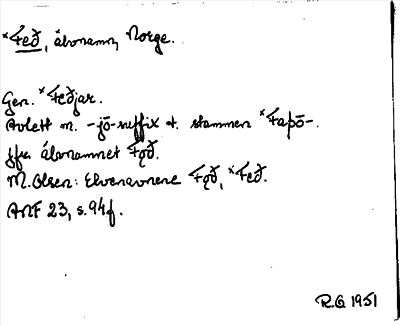 *Feð, älvnamn, Norge.
Gen. *Feðjar.
Avlett m. -jō-suffix t. stammen *Faþō-.
jfr älvnamnet Fǫð.
M. Olsen: Elvenavnene Fǫð, *Feð.
ANF 23, s. 94f.
R.G 1951